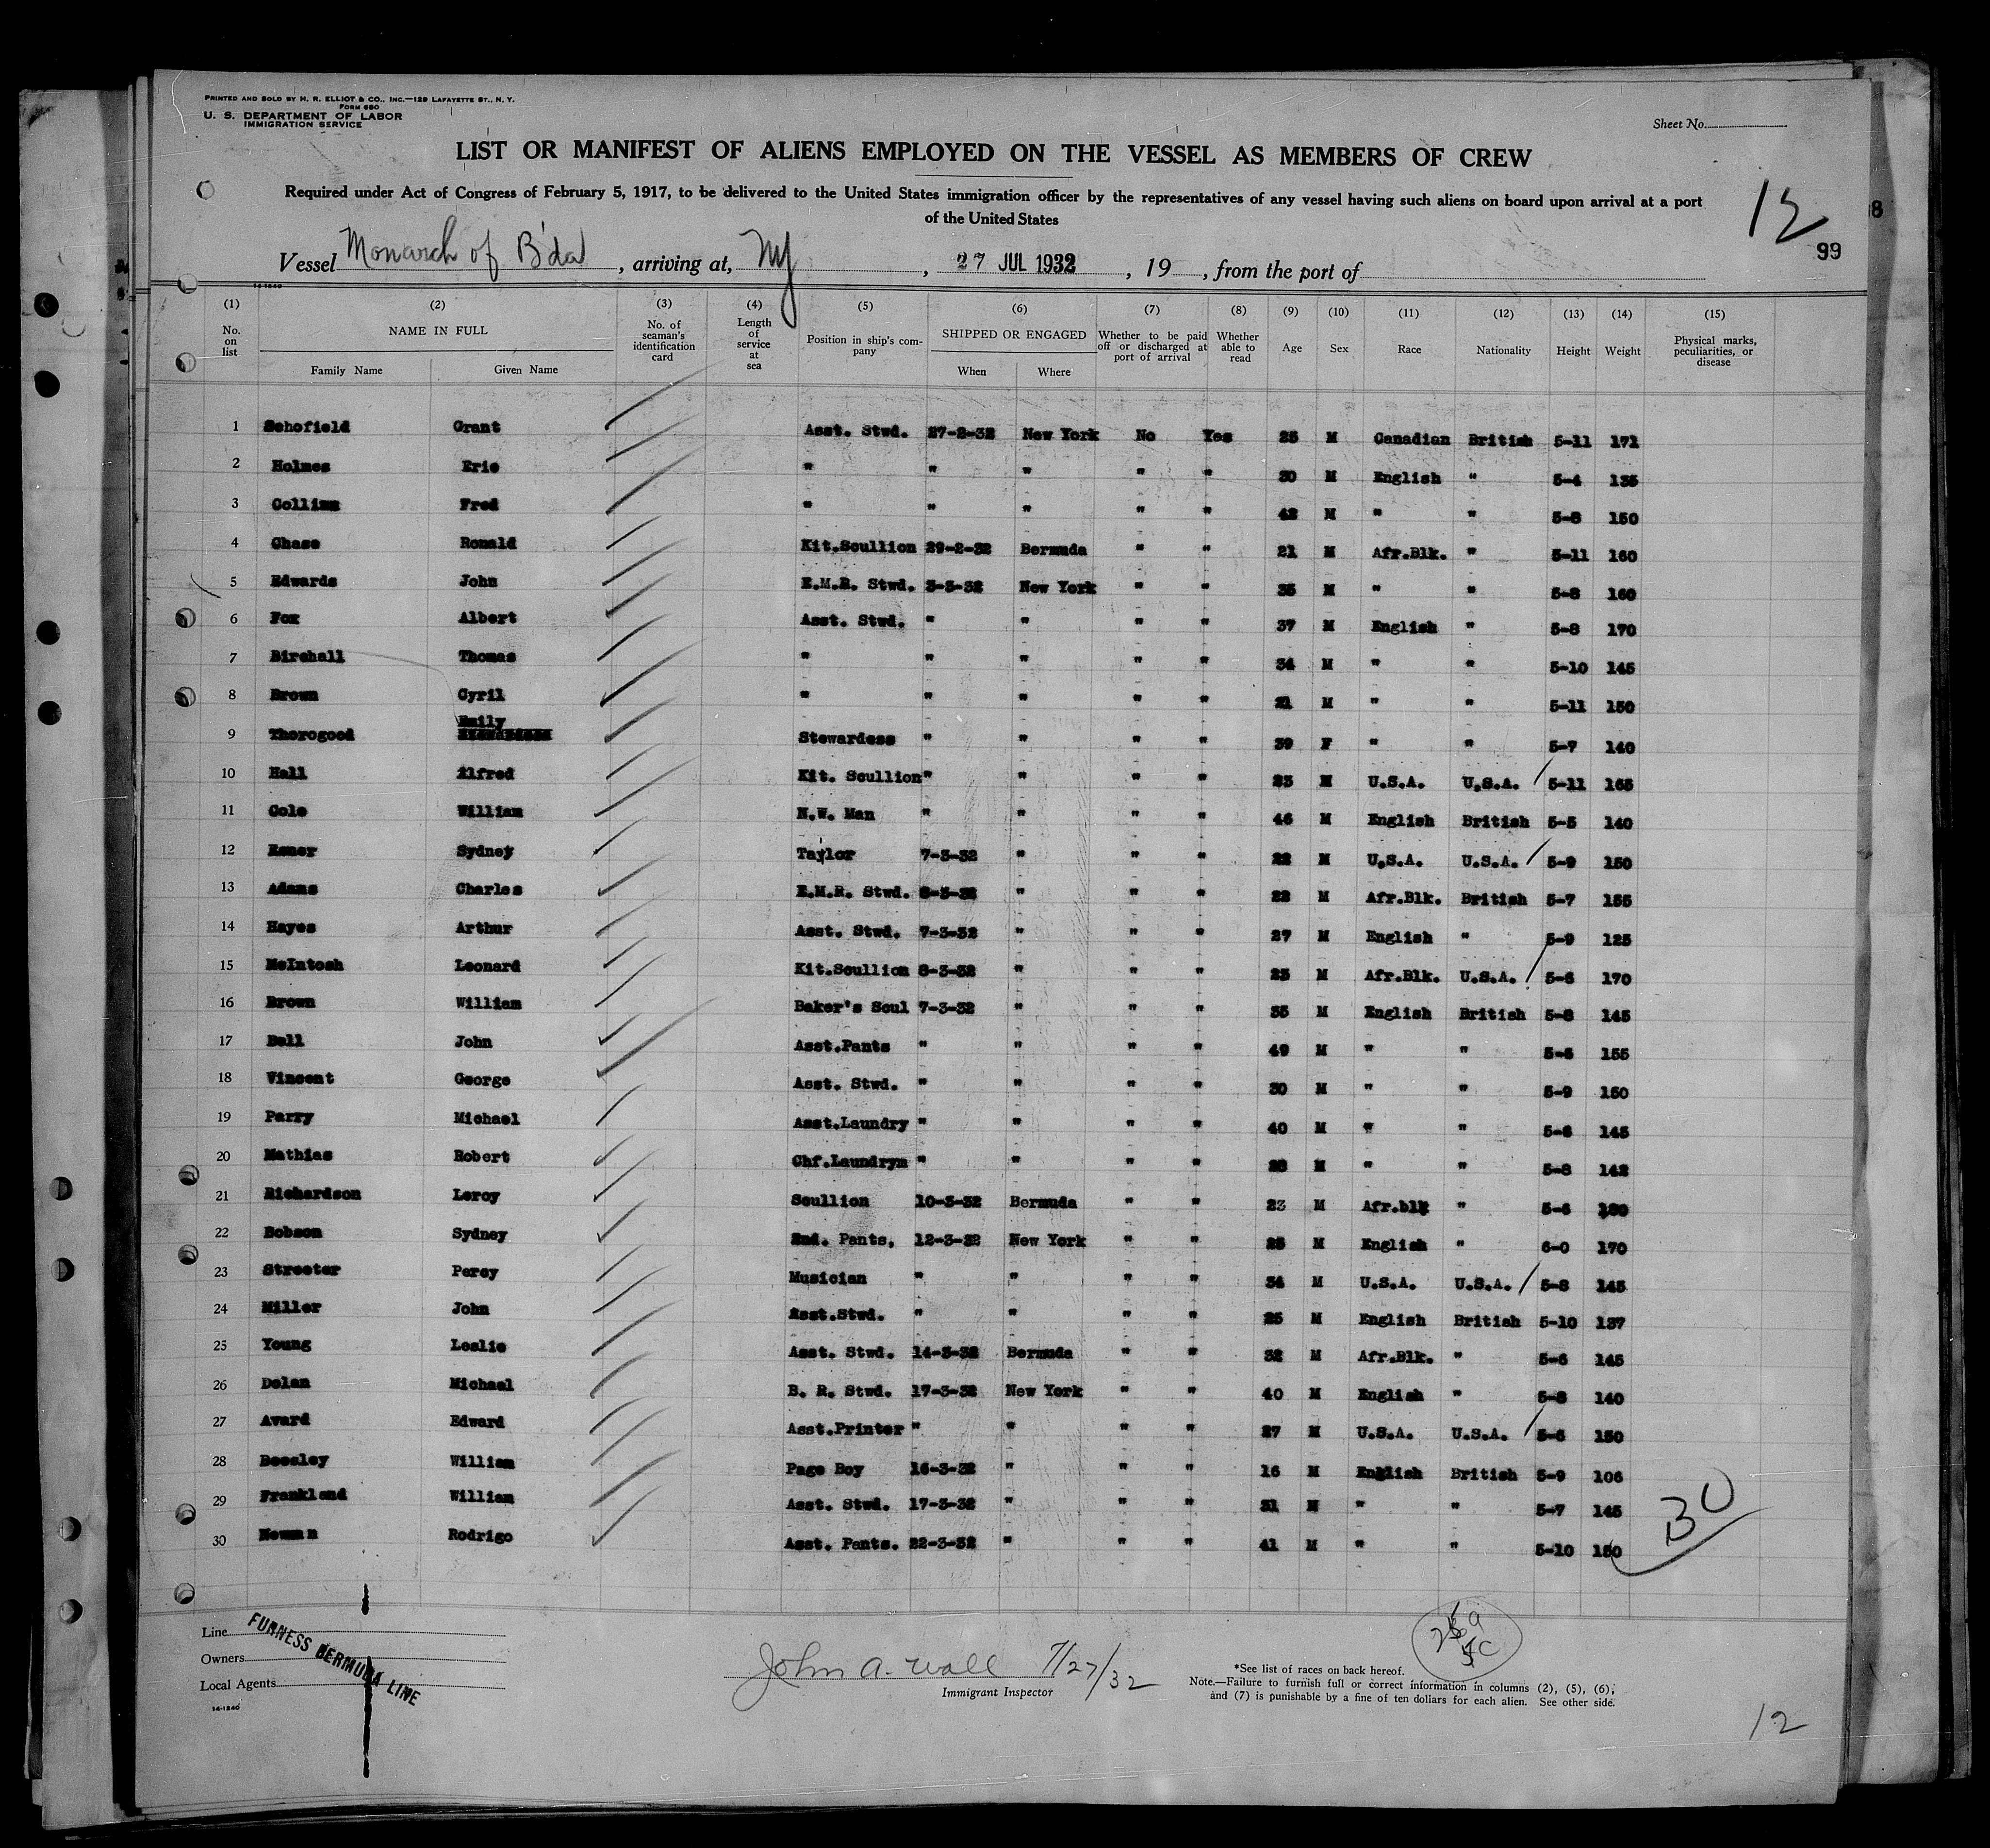 PRINTED AND SOLD BY H. R. ELLIOT & CO., INC.—129 LAFAYETTE ST., N. Y.
FORM 680
U. S. DEPARTMENT OF LABOR
IMMIGRATION SERVICE
Sheet No.
LIST OR MANIFEST OF ALIENS EMPLOYED ON THE VESSEL AS MEMBERS OF CREW
Required under Act of Congress of February 5, 1917, to be delivered to the United States immigration officer by the representatives of any vessel having such aliens on board upon arrival at a port
of the United States
12
99
Vessel Monarch of B'da, arriving at, NY, 27 JUL 1932, 19, from the port of
14-1240
(1) (2) (3) (4) (5) (6) (7) (8) (9) (10) (11) (12) (13) (14) (15)
No. on list NAME IN FULL No. of seaman's identification card Length of service at sea Position in ship's company SHIPPED OR ENGAGED Whether to be paid off or discharged at port of arrival Whether able to read Age Sex Race Nationality Height Weight Physical marks, peculiarities, or disease
Family Name Given Name When Where
1 Schofield Grant Asst. Stwd. 27-2-32 New York No Yes 25 M Canadian British 5-11 171
2 Holmes Eric " " " " " 30 M English " 5-4 135
3 Collins Fred " " " " " 42 M " " 5-8 150
4 Chase Ronald Kit.Scullion 29-2-32 Bermuda " " 21 M Afr.Blk. " 5-11 160
5 Edwards John E.M.R. Stwd. 3-3-32 New York " " 35 M " " 5-8 160
6 Fox Albert Asst. Stwd. " " " " 37 M English " 5-8 170
7 Birchall Thomas " " " " " 34 M " " 5-10 145
8 Brown Cyril " " " " " 21 M " " 5-11 150
9 Thorogood Emily Stewardess " " " " 39 F " " 5-7 140
10 Hall Alfred Kit. Scullion " " " " 23 M U.S.A. U.S.A. 5-11 165
11 Cole William N.W. Man " " " " 46 M English British 5-5 140
12 Esner Sydney Taylor 7-3-32 " " " 22 M U.S.A. U.S.A. 5-9 150
13 Adams Charles E.M.R. Stwd. 8-3-32 " " " 22 M Afr.Blk. British 5-7 155
14 Hayes Arthur Asst. Stwd. 7-3-32 " " " 27 M English " 5-9 125
15 McIntosh Leonard Kit.Scullion 8-3-32 " " " 23 M Afr.Blk. U.S.A. 5-6 170
16 Brown William Baker's Scul 7-3-32 " " " 35 M English British 5-8 145
17 Bell John Asst.Pants " " " " 49 M " " 5-6 155
18 Vincent George Asst. Stwd. " " " " 30 M " " 5-9 150
19 Parry Michael Asst.Laundry " " " " 40 M " " 5-6 145
20 Mathias Robert Chf.Laundrym " " " " 28 M " " 5-8 142
21 Richardson Leroy Scullion 10-3-32 Bermuda " " 23 M Afr.blk " 5-6
22 Bobson Sydney 2nd. Pants. 12-3-32 New York " " 25 M English " 6-0 170
23 Streeter Percy Musician " " " " 34 M U.S.A. U.S.A. 5-8 145
24 Miller John Asst.Stwd. " " " " 25 M English British 5-10 137
25 Young Leslie Asst. Stwd. 14-3-32 Bermuda " " 32 M Afr.Blk. " 5-6 145
26 Dolan Michael B. R. Stwd. 17-3-32 New York " " 40 M English " 5-8 140
27 Avard Edward Asst.Printer " " " " 27 M U.S.A. U.S.A. 5-6 150
28 Beesley William Page Boy 16-3-32 " " " 16 M English British 5-9 106
29 Frankland William Asst. Stwd. 17-3-32 " " " 31 M " " 5-7 145
30 Newman Rodrigo Asst. Pants. 22-3-32 " " " 41 M " " 5-10 150
30
Line
Owners
Local Agents
FURNESS BERMUDA LINE
14-1240
John A. Wall 7/27/32
Immigrant Inspector
*See list of races on back hereof.
Note.—Failure to furnish full or correct information in columns (2), (5), (6),
and (7) is punishable by a fine of ten dollars for each alien. See other side.
12